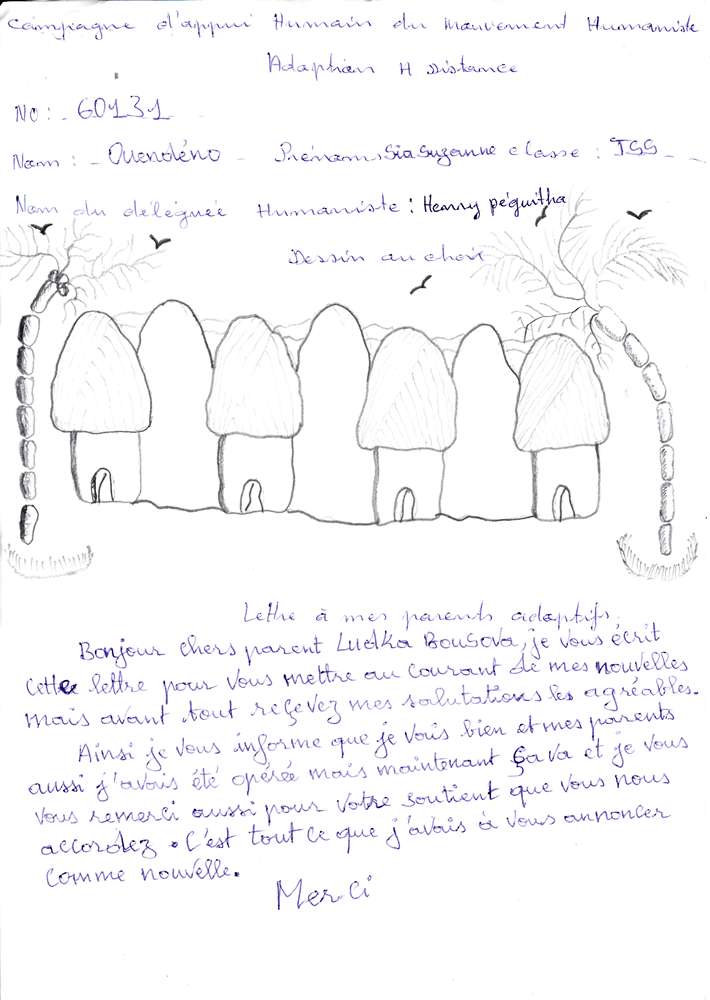 Campagne d'appui Humain du mouvement Humaniste
Adaption A Distance
No : 60131
Nom : Ouendéno Prénom, Sia Suzanne classe : TSS
Nom du déléguée Humaniste : Henry péguitha
Dessin au choix
Lettre à mes parents adoptifs.
Bonjour chers parent Ludka Bousova, je vous écrit
cette lettre pour vous mettre au courant de mes nouvelles
mais avant tout reçevez mes salutations les agréables.
Ainsi je vous informe que je vais bien et mes parents
aussi j'avais été opérée mais maintenant ça va et je vous
vous remerci aussi pour votre soutient que vous nous
accordez. C'est tout ce que j'avais à vous annoncer
comme nouvelle.
Merci